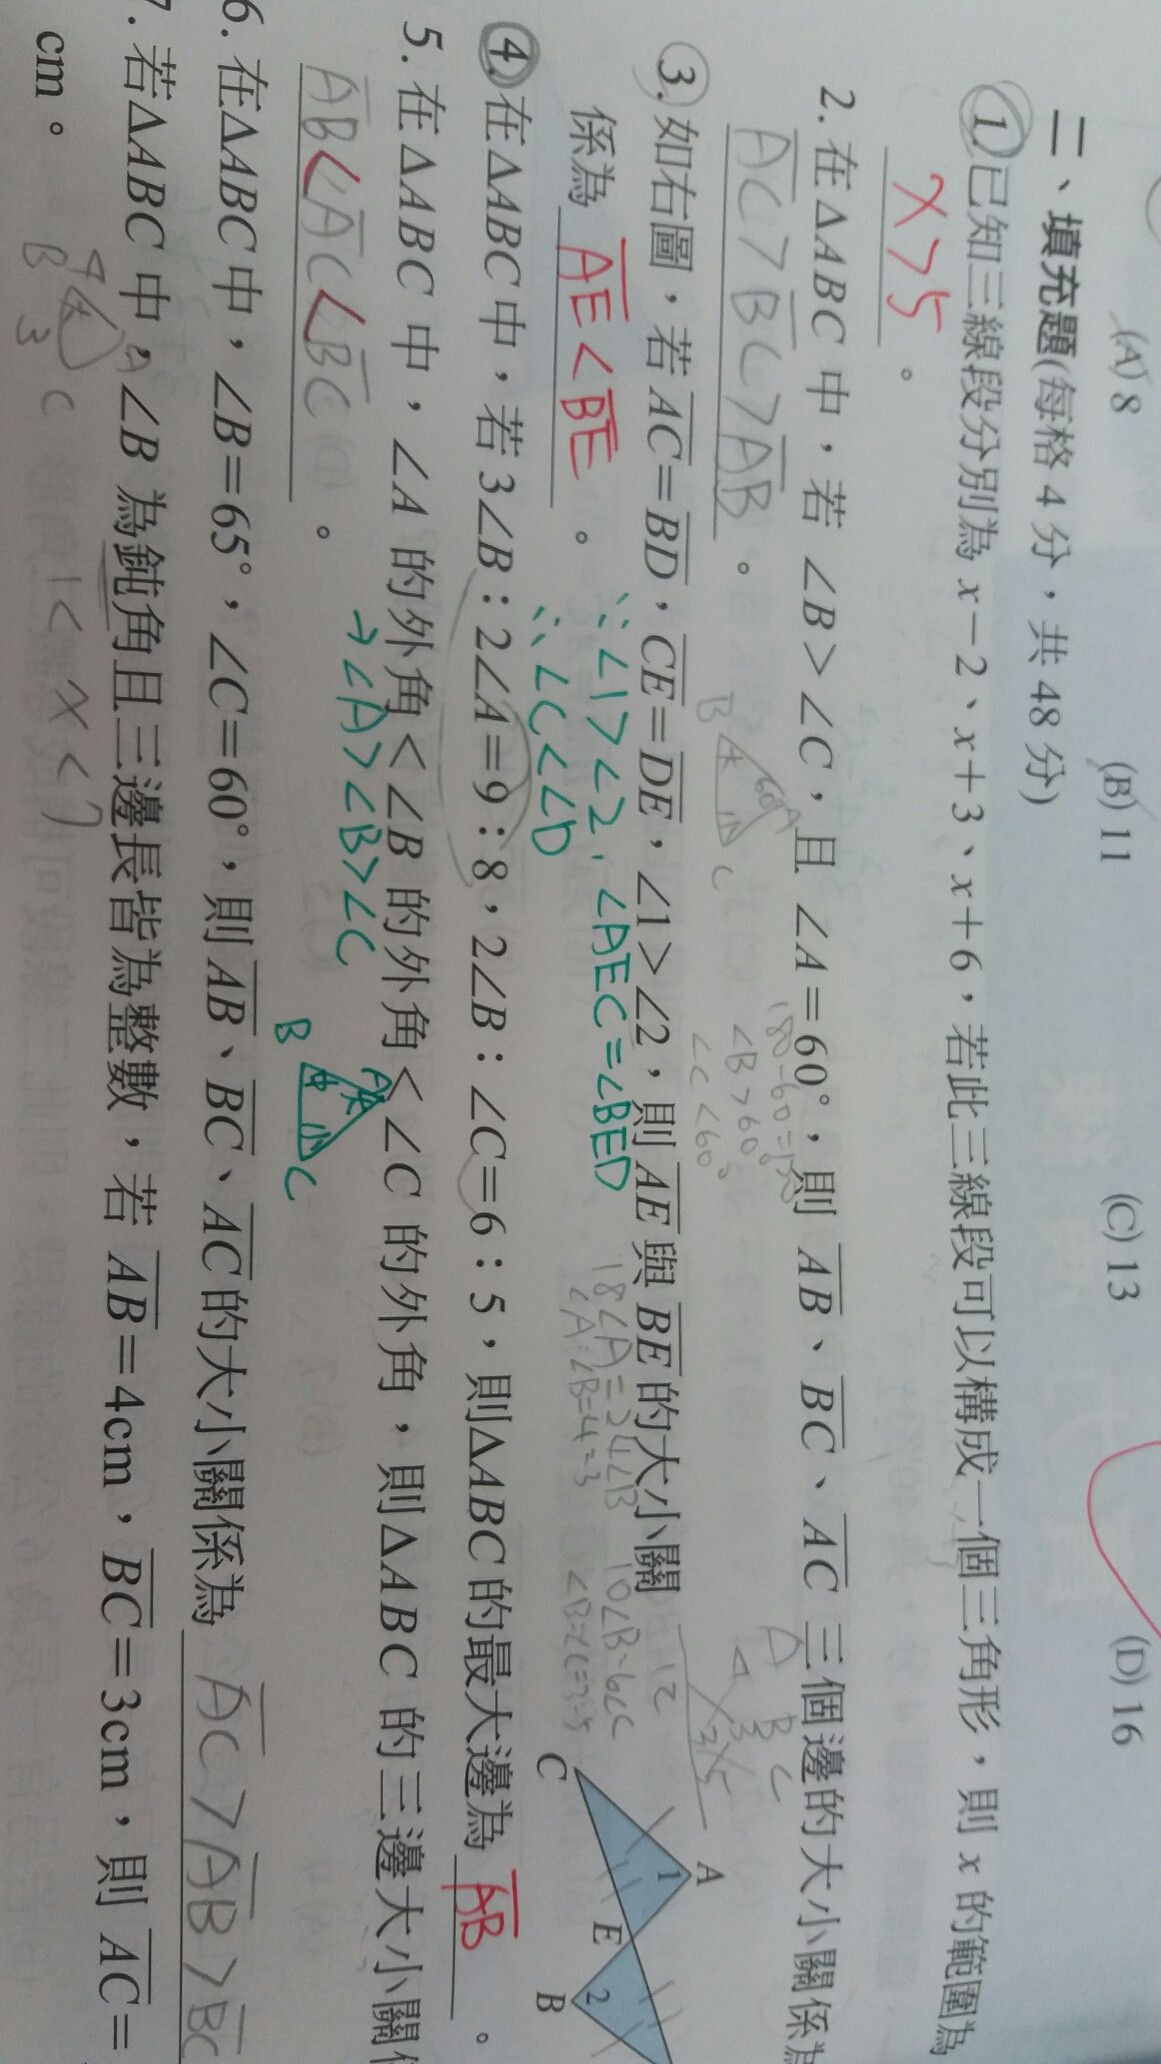 (A) 8 (B) 11 (C) 13 (D) 16
二、填充題(每格 4 分，共 48 分)
1. 已知三線段分別為 x－2、x＋3、x＋6，若此三線段可以構成一個三角形，則 x 的範圍為
x>5 。
2. 在△ABC 中，若 ∠B＞∠C，且 ∠A＝60°，則 AB、BC、AC 三個邊的大小關係為
AC>BC>AB 。
180-60=120
∠B>60°
∠C<60°
B 60° A C
3. 如右圖，若 AC＝BD，CE＝DE，∠1＞∠2，則 AE 與 BE 的大小關
係為 AE<BE 。
∵∠1>∠2，∠AEC=∠BED
∴∠C<∠D
A 1 C E B 2
4. 在△ABC 中，若 3∠B：2∠A＝9：8，2∠B：∠C＝6：5，則△ABC 的最大邊為 AB 。
18∠A=24∠B
∠A:∠B=4:3
10∠B=6∠C
∠B:∠C=3:5
A B C
4 3
3 5
12
5. 在△ABC 中，∠A 的外角＜∠B 的外角＜∠C 的外角，則△ABC 的三邊大小關
AB<AC<BC 。
→∠A>∠B>∠C
B A C
6. 在△ABC 中，∠B＝65°，∠C＝60°，則 AB、BC、AC 的大小關係為 AC>AB>BC
7. 若△ABC 中，∠B 為鈍角且三邊長皆為整數，若 AB＝4cm，BC＝3cm，則 AC＝
cm。
A 4 B 3 C
1<x<7